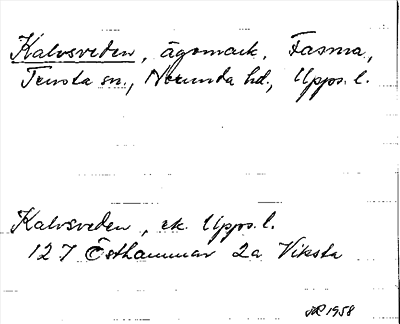 Kalvsveden, ägomark, Fasma,
Tensta sn., Norunda hd., Upps. l.
Kalvsveden, ek. Upps. l.
127 Östhammar 2a Viksta
1958